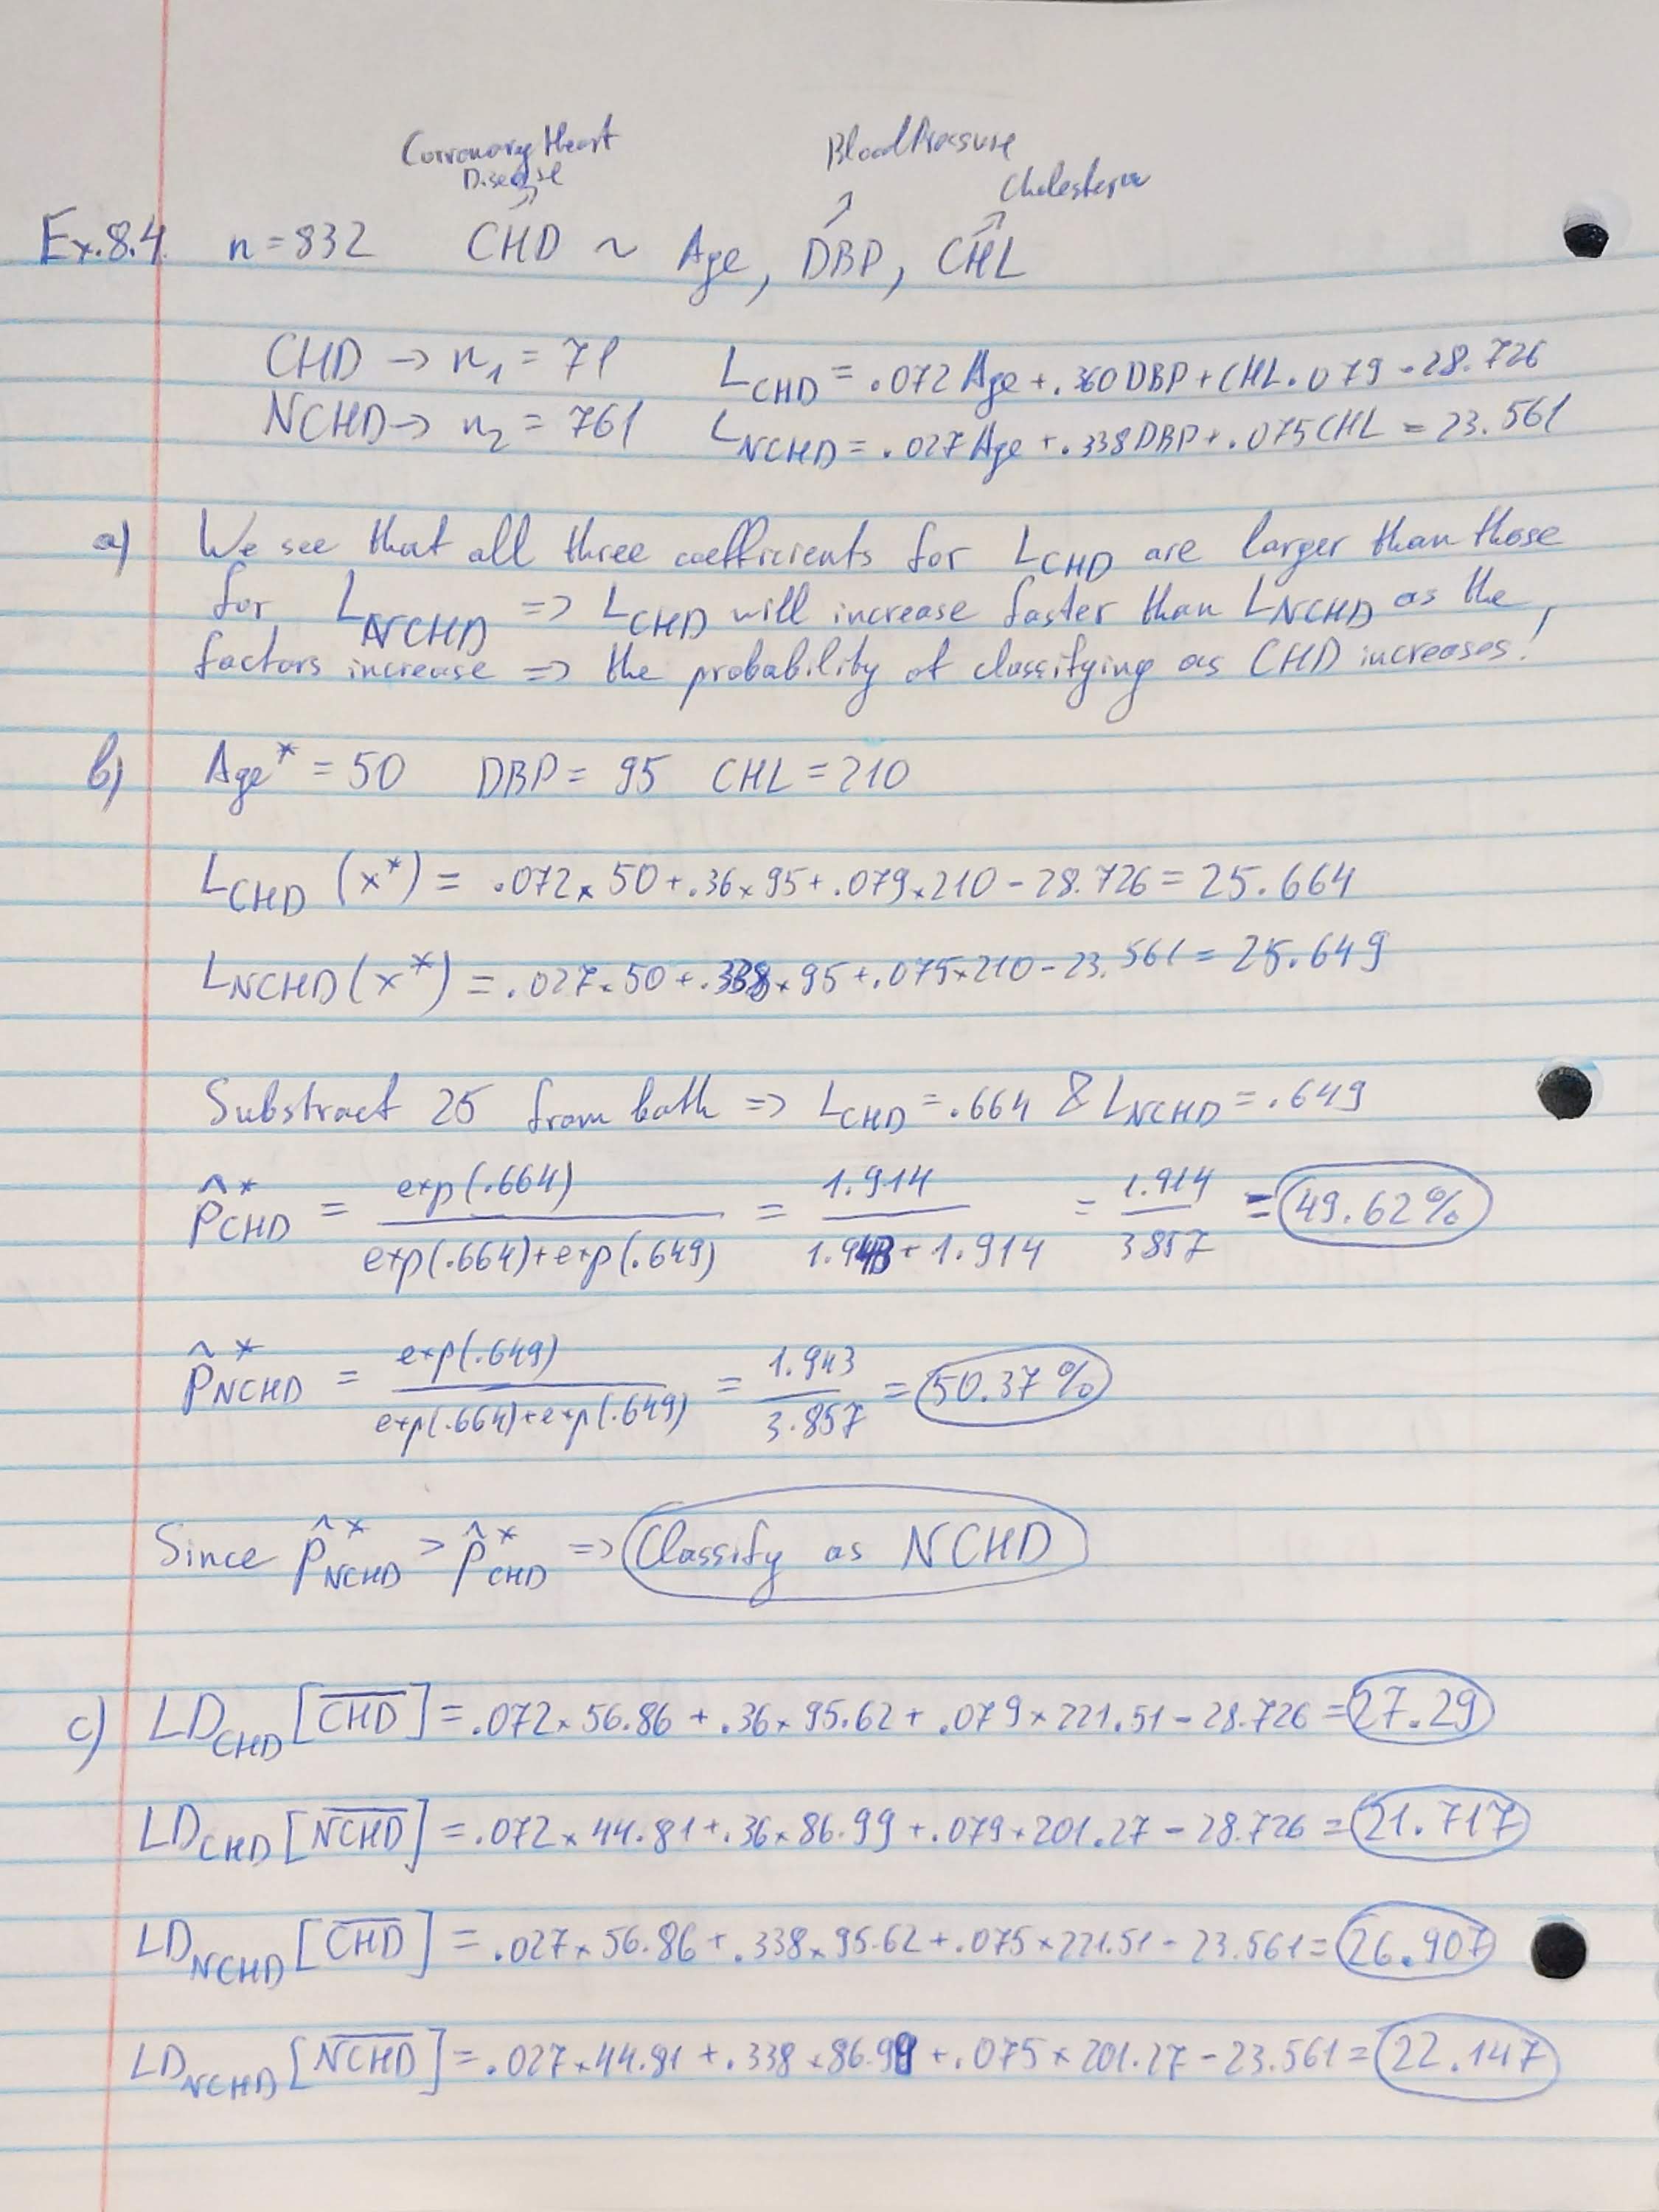 Corronary Heart Disease
BloodPressure
Cholesterin
Ex.8.4. n=832 CHD ~ Age, DBP, CHL
CHD → n₁ = 71 L_CHD = .072 Age + .360 DBP + CHL.079 - 28.726
NCHD → n₂ = 761 L_NCHD = .027 Age + .338 DBP + .075 CHL = 23.561
a) We see that all three coefficients for L_CHD are larger than those
for L_NCHD => L_CHD will increase faster than L_NCHD as the
factors increase => the probability of classifying as CHD increases!
b) Age* = 50 DBP = 95 CHL = 210
L_CHD (x*) = .072 × 50 + .36 × 95 + .079 × 210 - 28.726 = 25.664
L_NCHD (x*) = .027 × 50 + .338 × 95 + .075 × 210 - 23.561 = 25.649
Substract 25 from both => L_CHD = .664 & L_NCHD = .649
p̂*_CHD = exp(.664) / exp(.664)+exp(.649) = 1.914 / 1.943 + 1.914 = 1.914 / 3857 = 49.62%
p̂*_NCHD = exp(.649) / exp(.664)+exp(.649) = 1.943 / 3.857 = 50.37%
Since p̂*_NCHD > p̂*_CHD => Classify as NCHD
c) LD_CHD [C̅H̅D̅] = .072 × 56.86 + .36 × 95.62 + .079 × 221.51 - 28.726 = 27.29
LD_CHD [N̅C̅H̅D̅] = .072 × 44.81 + .36 × 86.99 + .079 × 201.27 - 28.726 = 21.717
LD_NCHD [C̅H̅D̅] = .027 × 56.86 + .338 × 95.62 + .075 × 221.51 - 23.561 = 26.907
LD_NCHD [N̅C̅H̅D̅] = .027 × 44.81 + .338 × 86.99 + .075 × 201.27 - 23.561 = 22.147